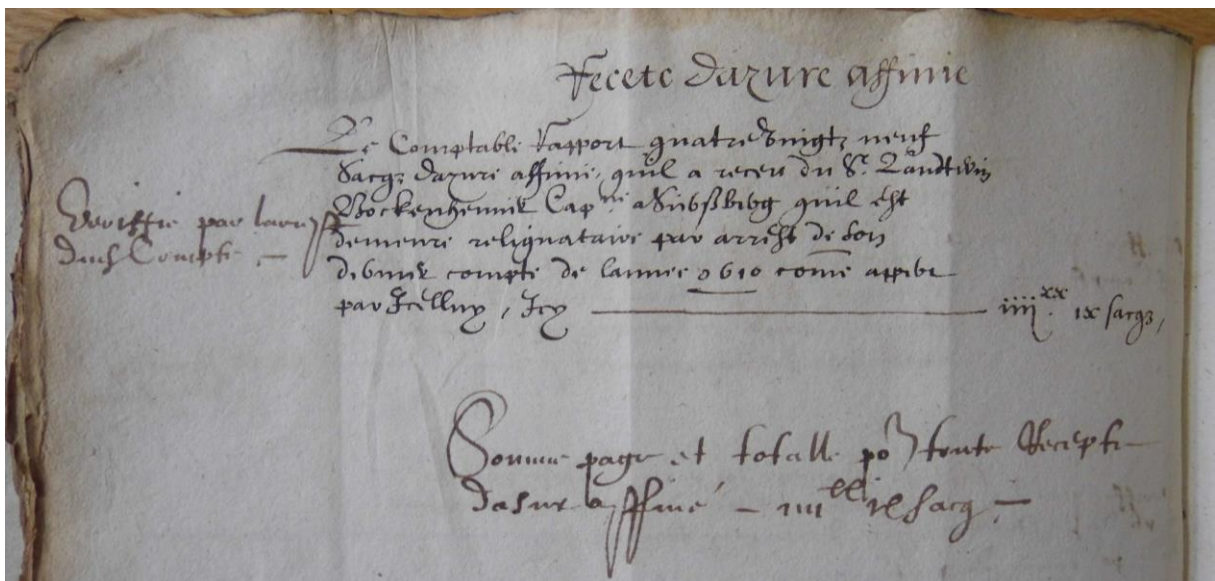 Recete dazure affinne
Le Comptable Rapport quatre vingtz neuf
Sacqz dazure affinné, quil a receu du Sr. Landtwin
Bockenheimer Cap.ne a quil est
demeure relignataire par arrest de son
dernier compte de lannee 1610 come appert
par Icelluy, Icy — iiii.xx ix sacqz,
Veriffie par larrest
dud. Compte. —
Somme page et totalle por toute Recepte
dasur affiné — iiii xx ix sacqz. —